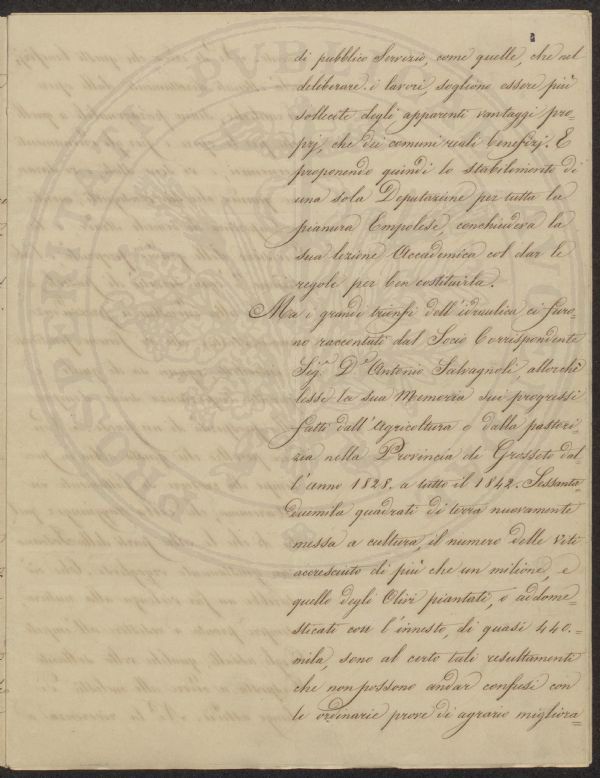 di pubblico Servizio, come quelle, che nel
deliberare i lavori, sogliono essere più
sollecite degli apparenti vantaggi pro=
prj, che dei comuni reali benefizj. E
proponendo quindi lo stabilimento di
una sola Deputazione per tutta la
pianura Empolese, conchiudeva la
sua lezione Accademica col dar le
regole per ben costituirla.
Ma i grandi trionfi dell'idraulica ci furo=
no raccontati dal Socio Corrispondente
Sig.r D.r Antonio Salvagnoli allorchè
lesse la sua Memoria sui progressi
fatti dall'Agricoltura e dalla pastori=
zia nella Provincia di Grosseto dal=
l'anno 1828. a tutto il 1842. Sessanta=
duemila quadrati di terra nuovamente
messa a cultura, il numero delle viti
accresciuto di più che un milione, e
quello degli Olivi piantati, o addome=
sticati con l'innesto, di quasi 440.=
mila, sono al certo tali resultamenti
che non possono andar confusi con
le ordinarie prove di agrario migliora=
PROSPERITATI PUBLICAE